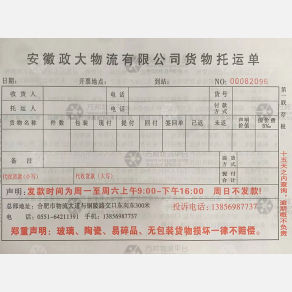 安徽政大物流有限公司货物托运单
日期: 开票地点: 到站: NO: 00062096
收货人 电话 货号
托运人 电话 付款方式
货物名称 件数 包装 现付 提付 回付 签回单 已返 未返 声明价值 保价费8‰
备注 提货方式
代收货款(小写) 代收货款(大写) 签字
声明:发款时间为周一至周六上午9:00-下午16:00 周日不发款!
总部地址:合肥市物流大道与铜陵路交口东向东300米 投诉电话:13856987737
电话:0551-64211391 手机:13856987737
郑重声明:玻璃、陶瓷、易碎品、无包装货物损坏一律不赔偿。
十五天之内查询,逾期概不负责